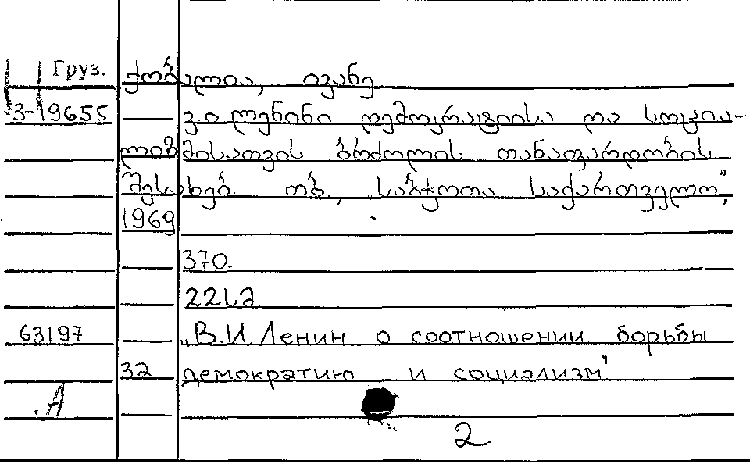 Груз. ქობალია, ივანე
3-19655 ვ.ი.ლენინი დემოკრატიისა და სოცია-
ლიზმისათვის ბრძოლის თანაფარდობის
შესახებ. თბ., „საბჭოთა საქართველო",
1969
370.
22 სმ
63197 „В.И.Ленин о соотношении борьбы
32 демократию и социализм"
А
2